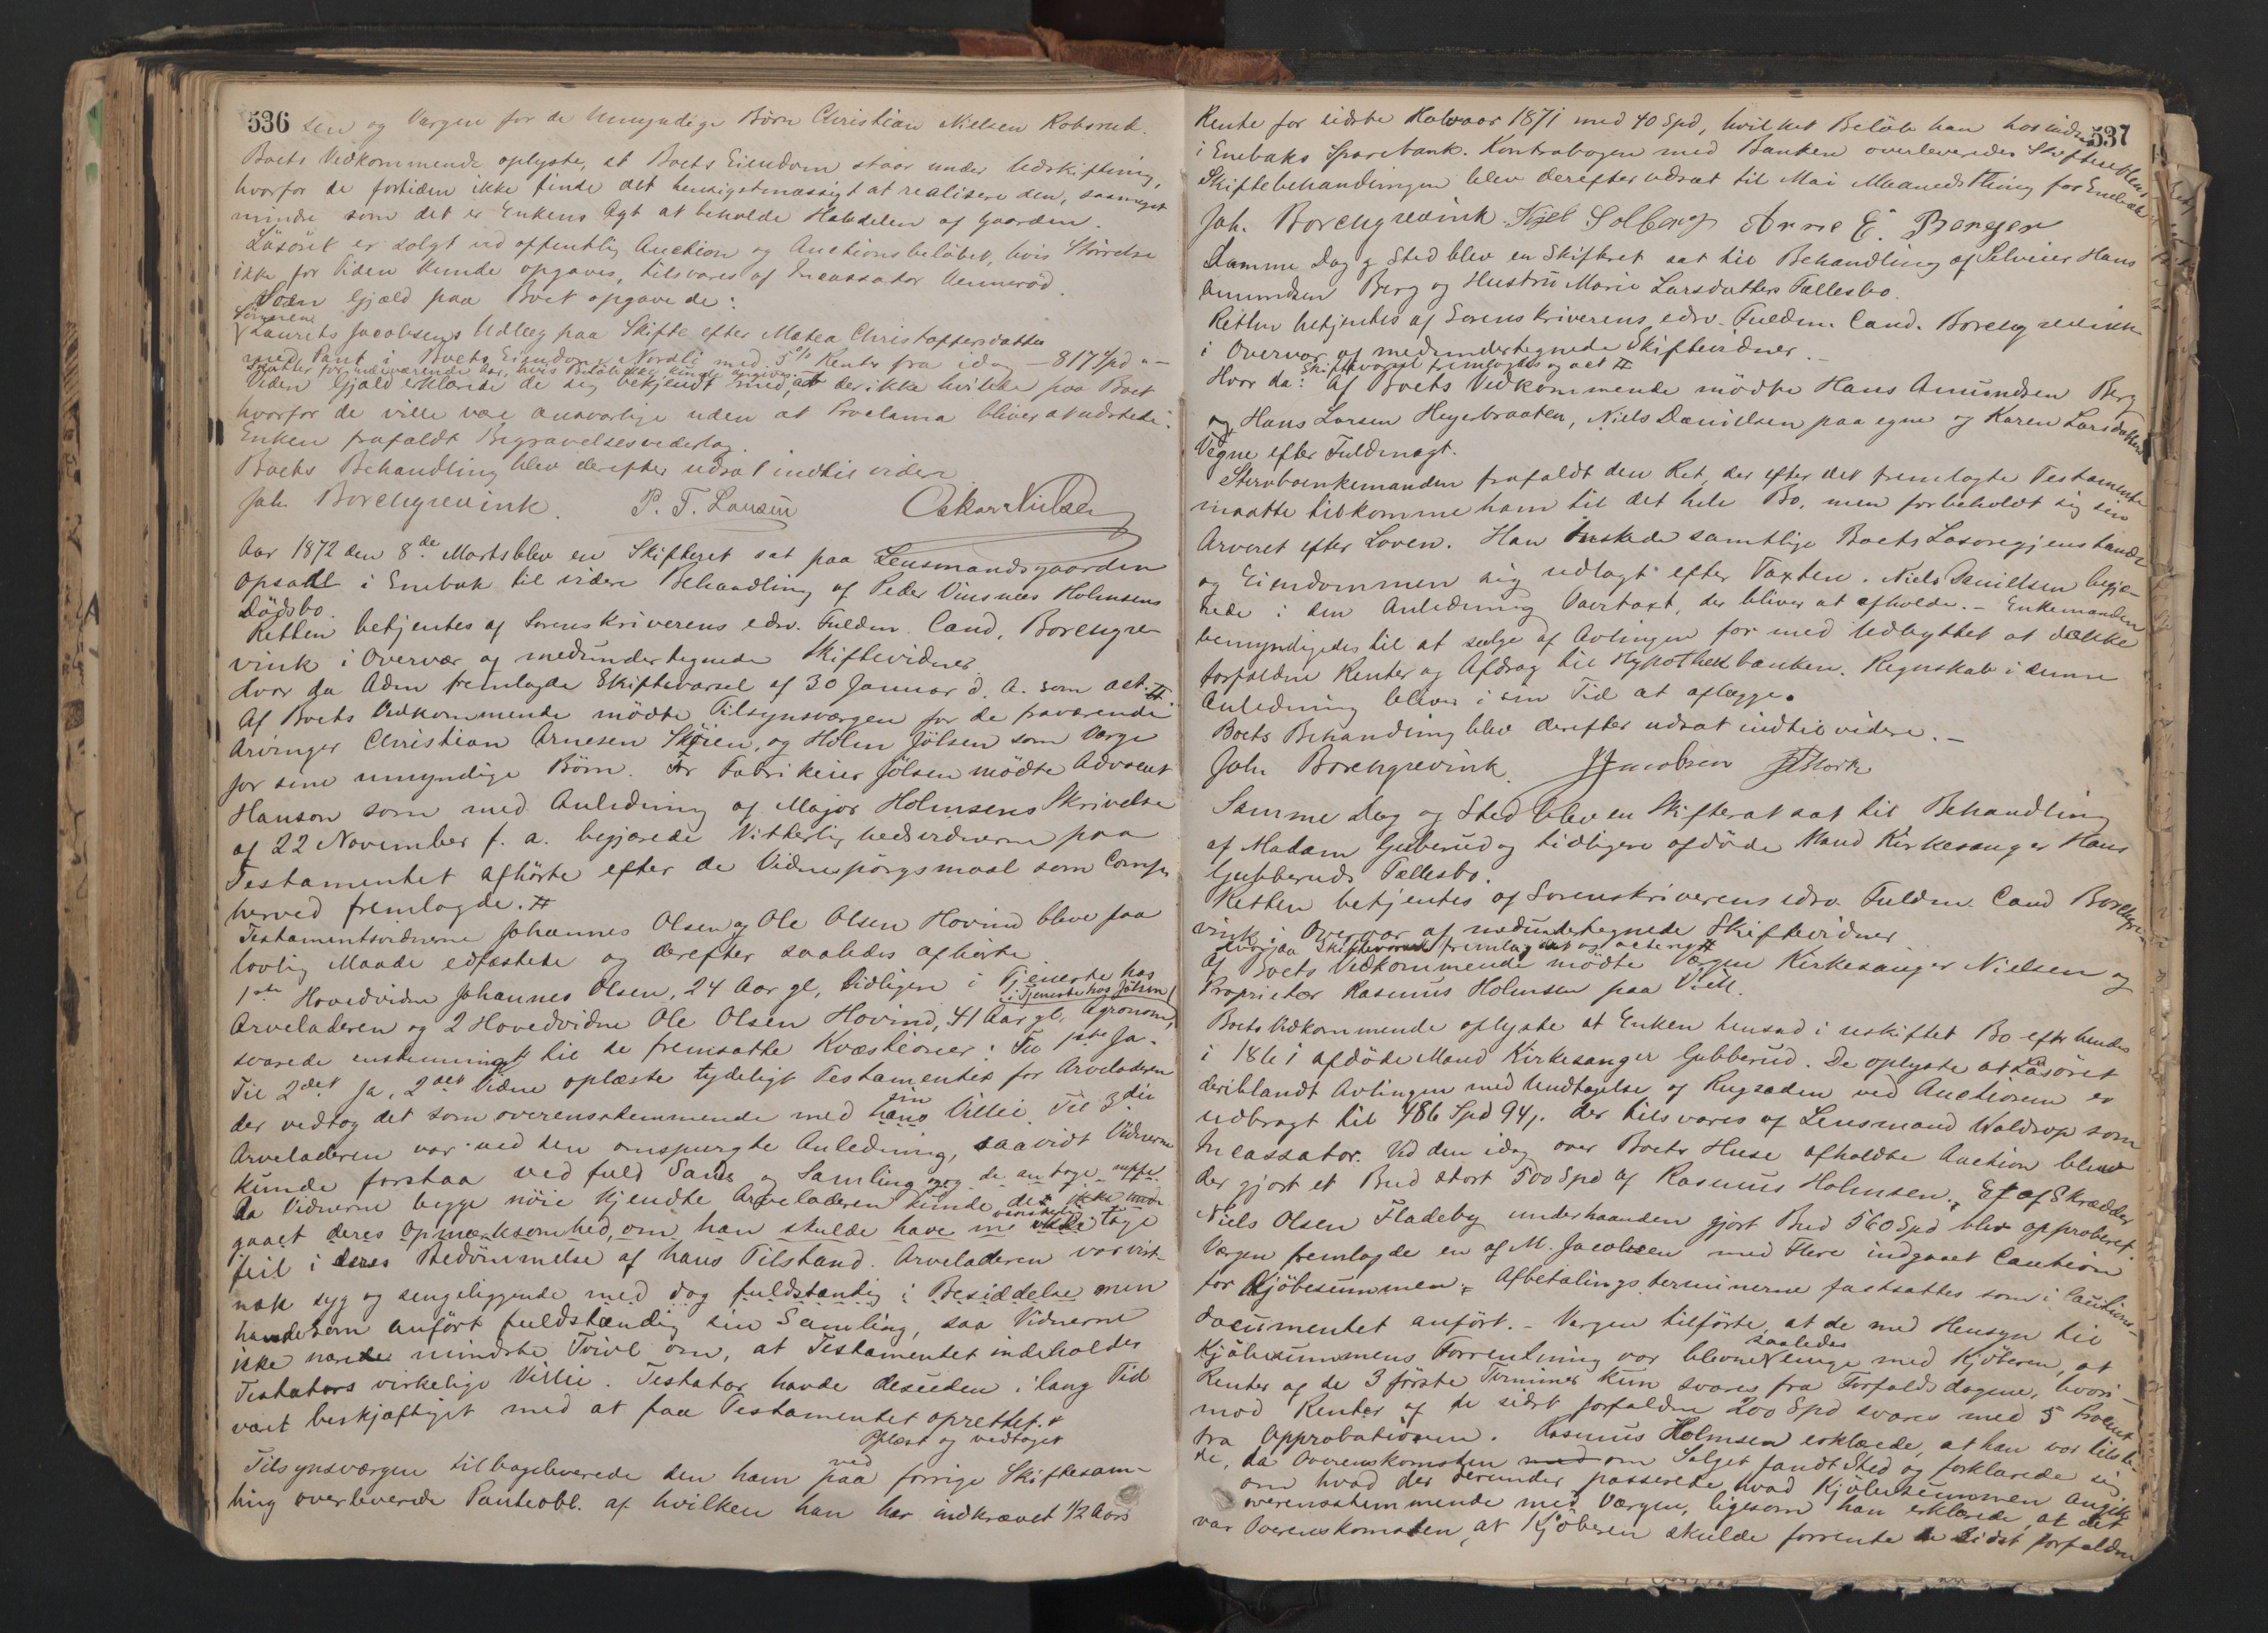 536
sen og Værgen for de Umyndige Børn Christian Nielsen Kobsrud.
Boets Vedkommende oplyste, at Boets Eiendom staar under Udskiftning,
hvorfor de fortiden ikke finde det hensigtsmæssigt at realisere den, saameget
mindre som det er Enkens Agt at beholde Halvdelen af Gaarden.
Løsøret er solgt ved offentlig Auction og Auctionsbeløbet, hvis Størrelse
ikke for Tiden kunde opgaves, tilsvares af Incassator Vennerød.
Som Gjæld paa Boet opgavede:
Sønnens
Laurits Jacobsens Udlæg paa Skifte efter Matea Christoffersdatter
med Pant i Boets Eiendom Nordli med 5% Rente fra idag - 817 Spd "-
Skatter for indeværende Aar, hvis Beløb ikke kunde angives.
Viden Gjæld erklærede de sig bekjendt med, at der ikke hviler paa Boet
hvorfor de ville være ansvarlige uden at Proclama bliver at udstede.
Enken frafaldt Begravelsesvederlag.
Boets Behandling blev derefter udsat indtil videre
Joh. Borchgrevink. P. T. Larsen Oskar Nielsen
Aar 1872 den 8de Marts blev en Skifteret sat paa Lensmandsgaarden
Opsahl i Enebak til videre Behandling af Peder Vinsnes Holmsens
Dødsbo.
Retten betjentes af Sorenskriverens edsv. Fuldm. Cand. Borchgre-
vink i Overvær af medundertegnede Skiftevidner
Hvor da Adm fremlagde Skiftevarsel af 30 Januar d. A. som act. #
Af Boets Vedkommende mødte Tilsynsværgen for de fraværende
Arvinger Christian Arnesen Skøien, og Holm Jølsen som Værge
for sine umyndige Børn. For Fabrikeier Jølsen mødte Advocat
Hanson som med Anledning af Major Holmsens Skrivelse
af 22 November f. a. begjærede Vitterlighedsvidnerne paa
Testamentet afhørte efter de Vidnespørgsmaal som Comp.
herved fremlagde. #
Testamentsvidnerne Johannes Olsen og Ole Olsen Hovind bleve paa
lovlig Maade edfæstede og derefter saaledes afhørte
1ste Hovedvidne Johannes Olsen, 24 Aar gl, tidligere i Tjeneste hos
i Tjeneste hos Jølsen
Arveladeren og 2 Hovedvidne Ole Olsen Hovind, 41 Aar gl. Agronom,
svarede enstemmigt til de fremsatte Kvæstioner: Til 1ste Ja.
Til 2det Ja, 2det Vidne oplæste tydeligt Testamentet for Arveladeren
sin
der vedtog det som overensstemmende med hans Villie. Til 3die
Arveladeren var ved den omspurgte Anledning, saavidt Vidnerne
kunde forstaa ved fuld Sands og Samling og de antoge
da Vidnerne begge nøie kjendte Arveladeren kunde det ikke und-
vanskelig
gaaet deres Opmærksomhed, om han skulde have ikke tage
feil i deres Bedømmelse af hans Tilstand. Arveladeren var vist-
nok syg og sengeliggende med dog fuldstændig i Besiddelse men
havde som anført fuldstændig sin Samling, saa Vidnerne
ikke nærede mindste Tvivl om, at Testamentet indeholder
Testators virkelige Villie. Testator havde desuden i lang Tid
været beskjæftiget med at faa Testamentet oprettet.
Oplæst og vedtaget
ved
Tilsynsværgen tilbageleverede den ham paa forrige Skiftesam-
ling overleverede Panteobl. af hvilken han har indkrævet 1/2 Aars
537
Rente for sidste Halvaar 1871 med 40 Spd, hvilket Beløb han har indsat
i Enebaks Sparebank. Kontrabogen med Banken overleveredes Skifteretten.
Skiftebehandlingen blev derefter udsat til Mai Maaneds Thing for Enebak
Joh. Borchgrevink. Kjel Solberg Arne E. Berger
Samme Dag og Sted blev en Skifteret sat til Behandling af Selveier Hans
Amundsen Berg og Hustru Marie Larsdatters Fællesbo.
Retten betjentes af Sorenskriverens edsv. Fuldm. Cand. Borchgrevink
i Overvær af medundertegnede Skiftevidner.-
Skiftevarsel fremlagdes og act #
Hvor da: Af Boets Vedkommende mødte Hans Amundsen Berg
og Hans Larsen Heyerbraaten, Niels Danielsen paa egne og Karen Larsdatters
Vegne efter Fuldmagt.
Stervboenkemanden frafaldt den Ret, der efter det fremlagte Testamente
maatte tilkomme ham til det hele Bo, men forbeholdt sig sin
Arveret efter Loven. Han ønskede samtlige Boets Løsøregjenstande
og Eiendommen sig udlagt efter Taxten. Niels Danielsen begjæ-
rede i den Anledning Vaartaxt, der bliver at afholde.- Enkemanden
bemyndigedes til at sælge af Avlingen for med Udbyttet at dække
forfaldne Renter og Afdrag til Hypothekbanken. Regnskab i denne
Anledning bliver i sin Tid at aflægge.
Boets Behandling blev derefter udsat indtil videre.-
Joh. Borchgrevink. J Jacobsen
Samme Dag og Sted blev en Skifteret sat til Behandling
af Madam Gubberud og tidligere afdøde Mand Kirkesanger Hans
Gubberuds Fællesbo.
Retten betjentes af Sorenskriverens edsv. Fuldm. Cand Borchgre-
vink i Overvær af medundertegnede Skiftevidner
Hvor da Skiftevarsel fremlagdes og acteres #
Af Boets Vedkommende mødte Værgen Kirkesanger Nielsen og
Proprietær Rasmus Holmsen paa Vik.
Boets Vedkommende oplyste at Enken hensad i uskiftet Bo efter hendes
i 1861 afdøde Mand Kirkesanger Gubberud. De oplyste at Løsøret
deriblandt Avlingen med Undtagelse af Rugsæden ved Auctionen er
udbragt til 486 Spd 94 s. der tilsvares af Lensmand Waldrop som
Incassator. Ved den idag over Boets Huse afholdte Auction blev
der gjort et Bud stort 500 Spd af Rasmus Holmsen. Et af Skrædder
Niels Olsen Fladeby underhaanden gjort Bud 560 Spd blev approberet.
Værgen fremlagde en af M. Jacobsen med Flere indgaaet Caution
for Kjøbesummen. Afbetalingsterminerne fastsattes som i Cautions-
documentet anført.- Værgen tilførte, at de med Hensyn til
saaledes
Kjøbesummens Forrentning var blevne enige med Kjøberen, at
Renter af de 3 første Terminer kun svares fra Forfaldsdagene, hvori-
mod Renter af de sidst forfaldne 200 Spd svares med 5 Procent
fra Approbationen. Rasmus Holmsen erklærede, at han var tilste-
de, da Overenskomsten om Salget fandt Sted og forklarede sig
om hvad der derunder passerede hvad Kjøbesummen angik
overensstemmende med Værgen, ligesom han erklærede, at det
var Overenskomsten, at Kjøberen skulde forrente de sidst forfaldne